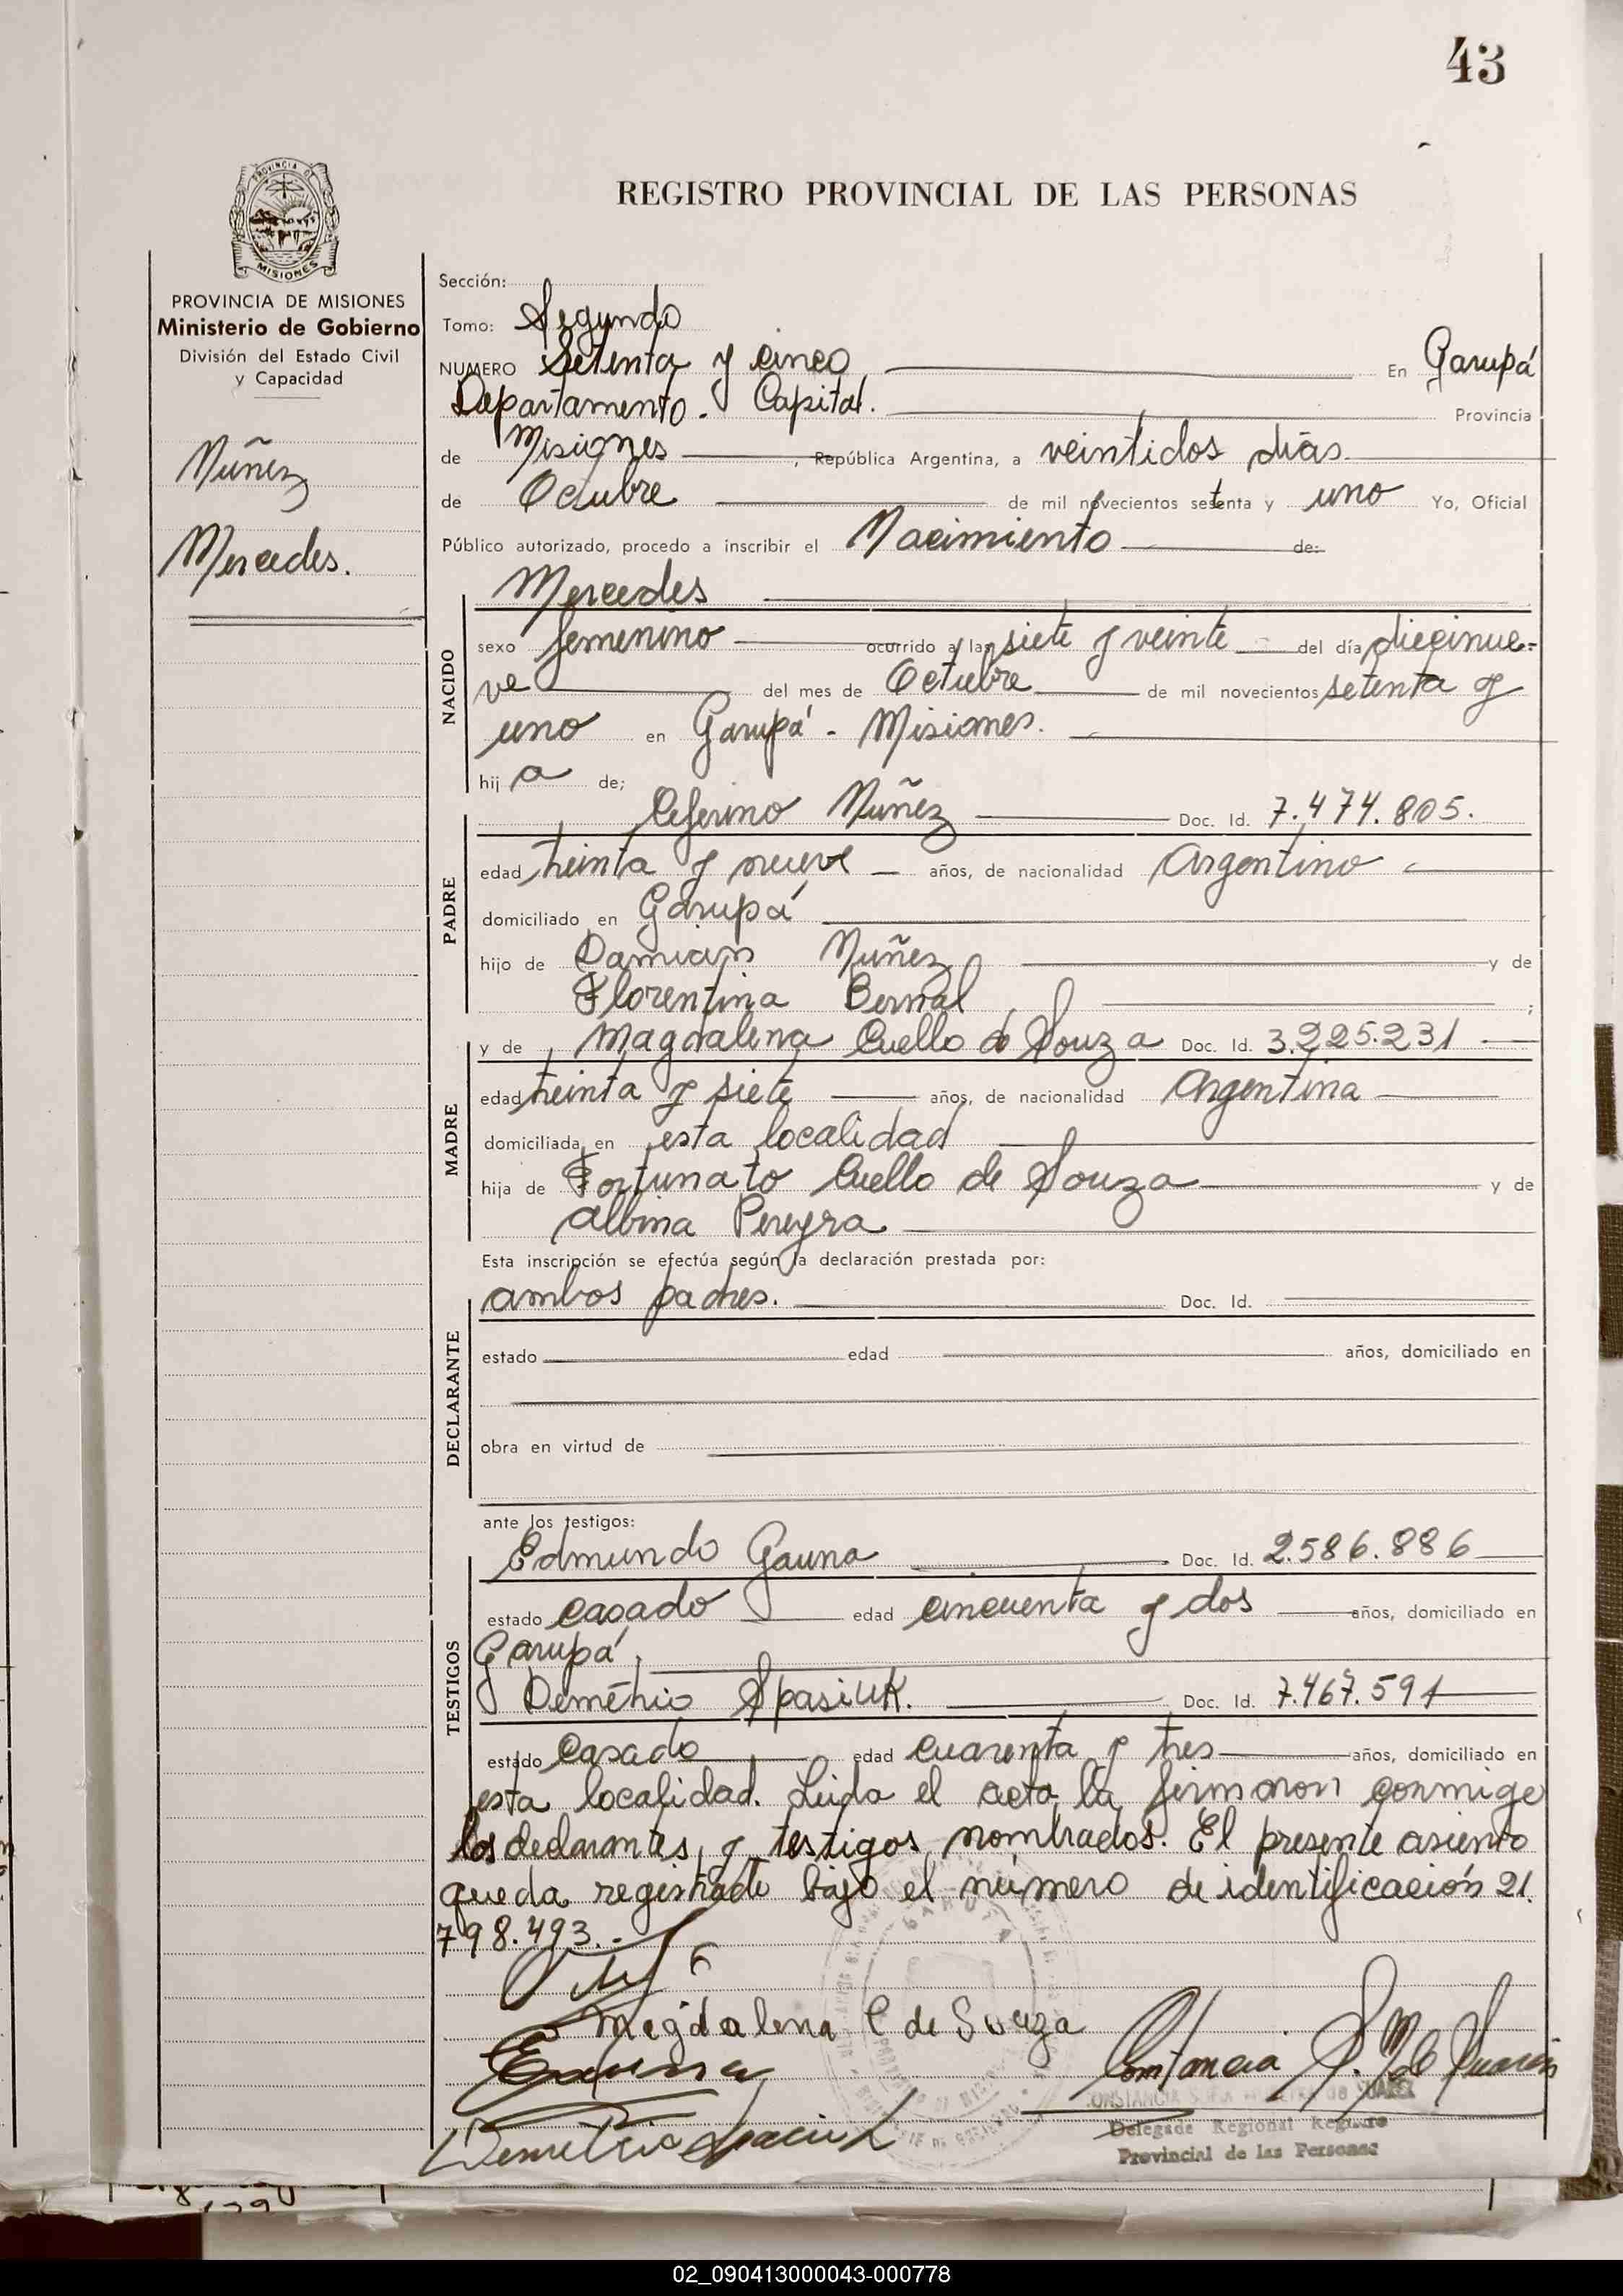 43
REGISTRO PROVINCIAL DE LAS PERSONAS
PROVINCIA DE MISIONES
Ministerio de Gobierno
División del Estado Civil
y Capacidad
Núñez
Mercedes.
Sección:
Tomo: Segundo
NUMERO Setenta y cinco En Garupá
Departamento - Capital. Provincia
de Misiones, República Argentina, a veintidos dias
de Octubre de mil novecientos setenta y uno Yo, Oficial
Público autorizado, procedo a inscribir el Nacimiento de:
Mercedes
NACIDO
sexo femenino ocurrido a las siete y veinte del día diecinue-
ve del mes de Octubre de mil novecientos setenta y
uno en Garupá - Misiones.
hij a de;
Ceferino Núñez Doc. Id. 7.474.805.
PADRE
edad treinta y nueve años, de nacionalidad Argentino
domiciliado en Garupá
hijo de Damian Núñez y de
Florentina Bernal ;
y de Magdalena Cuello de Souza Doc. Id. 3.225.231
MADRE
edad treinta y siete años, de nacionalidad Argentina
domiciliada en esta localidad
hija de Fortunato Cuello de Souza y de
Albina Pereyra
Esta inscripción se efectúa según la declaración prestada por:
ambos padres. Doc. Id.
DECLARANTE
estado edad años, domiciliado en
obra en virtud de
ante los testigos:
Edmundo Gauna Doc. Id. 2.586.886
TESTIGOS
estado casado edad cincuenta y dos años, domiciliado en
Garupá.
Demétrio Spasiuk. Doc. Id. 7.467.591
estado casado edad cuarenta y tres años, domiciliado en
esta localidad. Leida el acta la firmaron conmigo
los declarantes y testigos nombrados. El presente asiento
queda registrado bajo el número de identificación 21.
798.493.-
Magdalena C de Souza
Constancia S. M de Suarez
Demetrio Spasiuk
Delegada Regional Registro
Provincial de las Personas
02_090413000043-000778